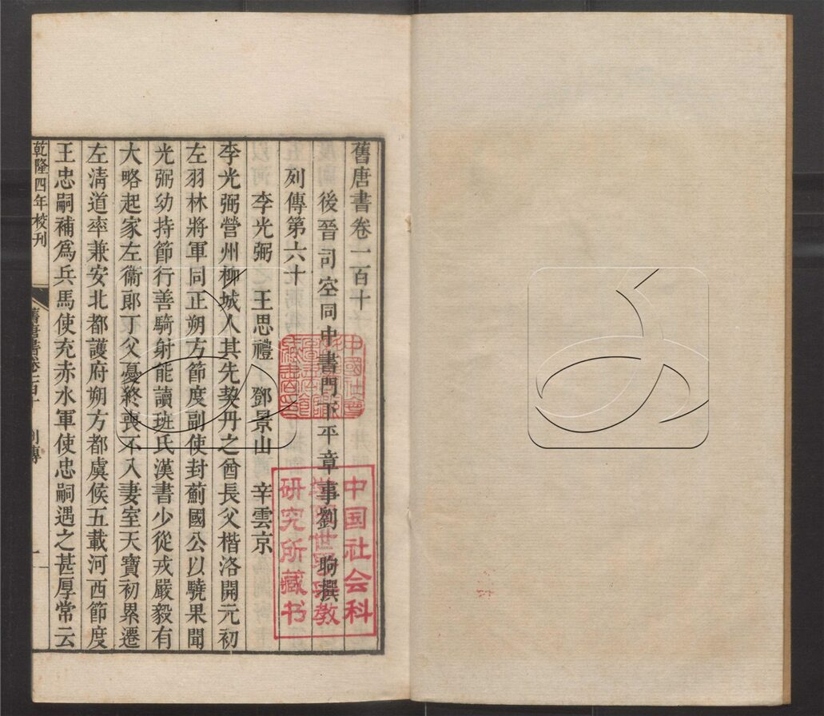 舊唐書卷一百十
後晉司空同中書門下平章事劉昫撰
列傳第六十
李光弼 王思禮 鄧景山 辛雲京
李光弼營州柳城人其先契丹之酋長父楷洛開元初
左羽林將軍同正朔方節度副使封薊國公以驍果聞
光弼幼持節行善騎射能讀班氏漢書少從戎嚴毅有
大略起家左衞郎丁父憂終喪不入妻室天寶初累遷
左清道率兼安北都護府朔方都虞候五載河西節度
王忠嗣補爲兵馬使充赤水軍使忠嗣遇之甚厚常云
乾隆四年校刊
舊唐書卷一百十 列傳 一
中国社会科
学院世界宗教
研究所藏书